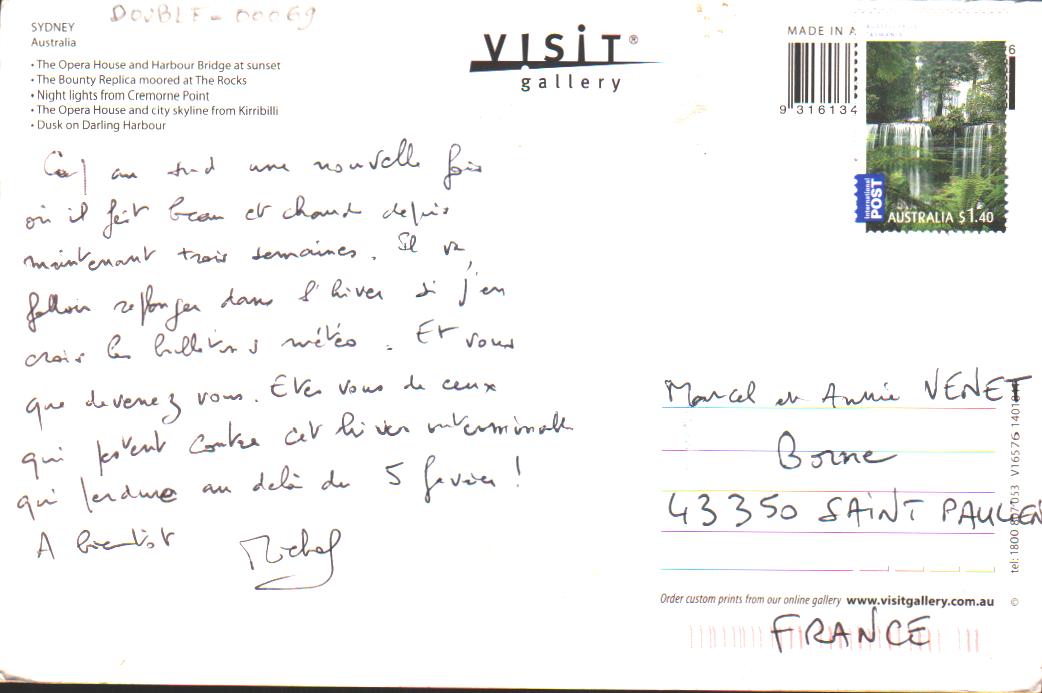 DOUBLE - 00069
SYDNEY
Australia
• The Opera House and Harbour Bridge at sunset
• The Bounty Replica moored at The Rocks
• Night lights from Cremorne Point
• The Opera House and city skyline from Kirribilli
• Dusk on Darling Harbour
VISIT®
gallery
MADE IN A
9 316134
6
International
POST
AUSTRALIA $1.40
Cap au sud une nouvelle fois
où il fait beau et chaud depuis
maintenant trois semaines. Il va
falloir replonger dans l'hiver si j'en
crois les bulletins météo. Et vous
que devenez vous. Etes vous de ceux
qui pestent contre cet hiver interminable
qui perdure au delà du 5 février !
A bientôt
Michel
Marcel et Annie VENET
Borne
43350 SAINT PAULIEN
FRANCE
Order custom prints from our online gallery www.visitgallery.com.au ©
tel: 1800 807 053 V16576 1401